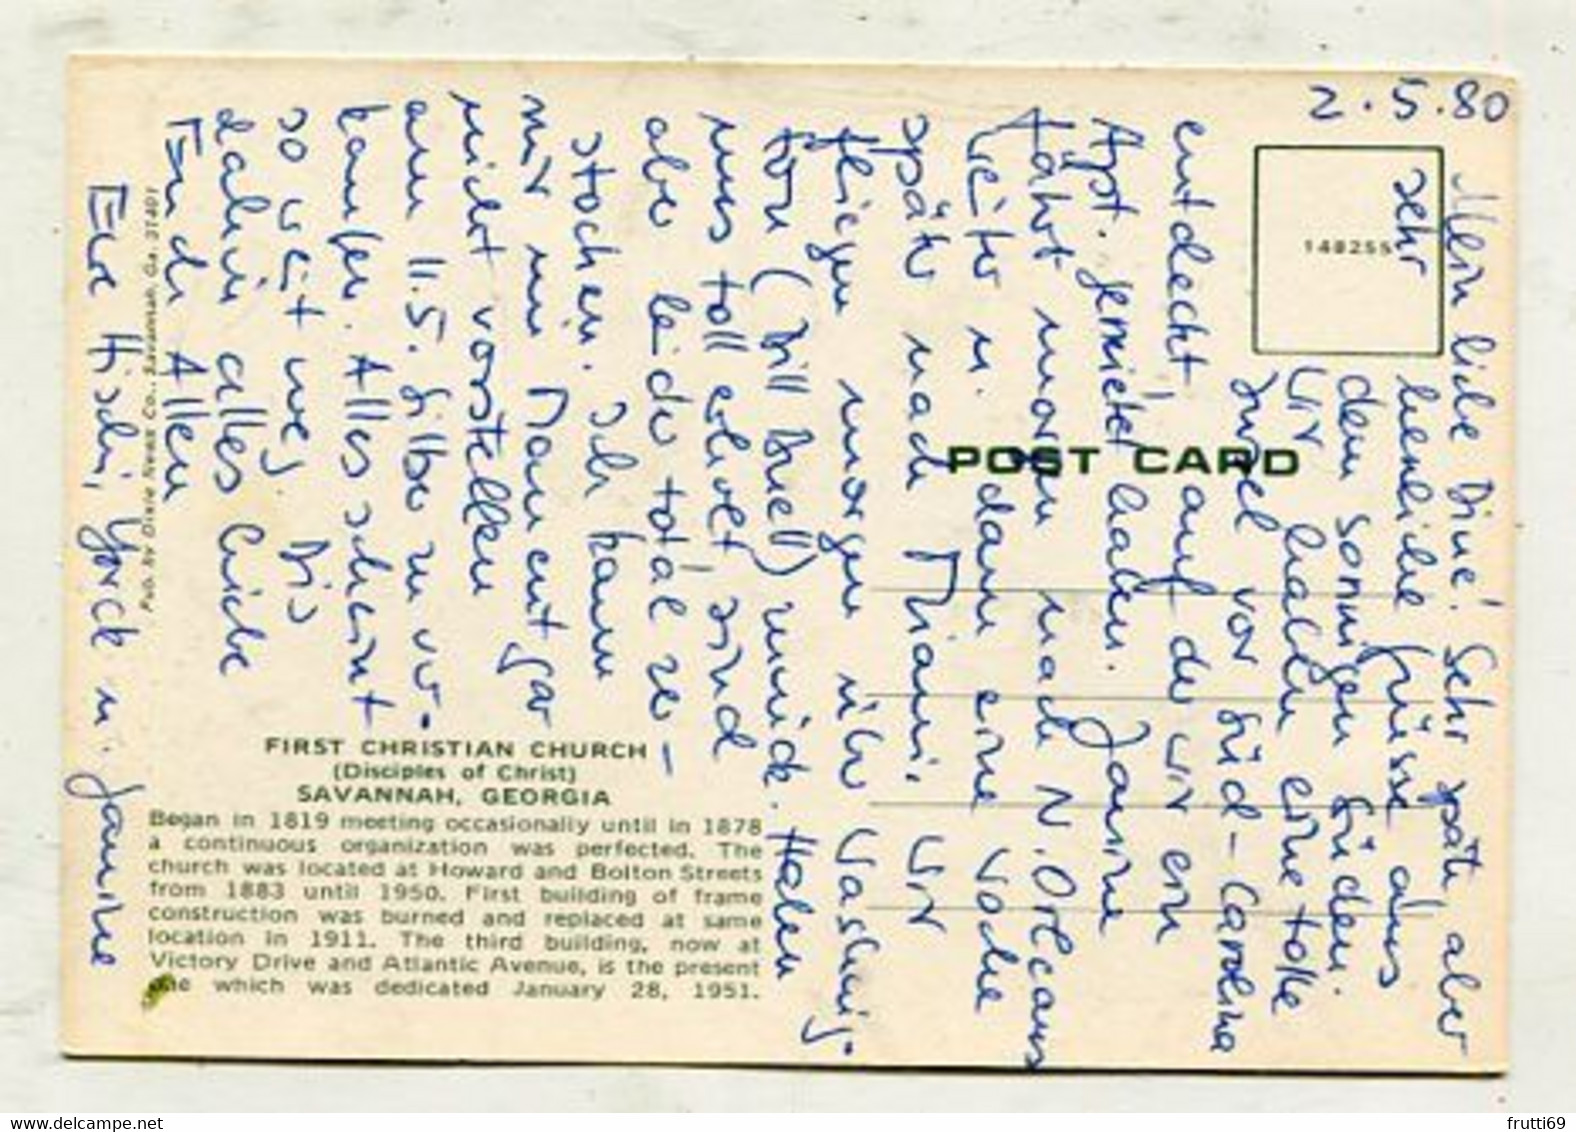 2.5.80
Mein liebe Diné! Sehr spät, aber
sehr herzliche Grüsse aus
dem sonnigen Süden.
Wir haben eine tolle
Insel vor Süd-Carolina
entdeckt, auf der wir ein
Apt. gemietet haben. Janine
fährt morgen nach N. Orleans
weiter u. dann eine Woche
später nach Miami. Wir
fliegen morgen über Washing-
ton (Bill Buell) zurück. Haben
uns toll erholt sind
aber leider total zer-
stochen. Ich kann
mir im Moment gar
nicht vorstellen
am 11.5. Silber zu ver-
kaufen. Alles scheint
so weit weg. Bis
dahin alles Liebe
Euch Allen
Eure Heidi, Yorick u. Janine
148255
POST CARD
Pub. by Dixie News Co., Savannah, Ga. 31401
FIRST CHRISTIAN CHURCH
(Disciples of Christ)
SAVANNAH, GEORGIA
Began in 1819 meeting occasionally until in 1878
a continuous organization was perfected. The
church was located at Howard and Bolton Streets
from 1883 until 1950. First building of frame
construction was burned and replaced at same
location in 1911. The third building, now at
Victory Drive and Atlantic Avenue, is the present
one which was dedicated January 28, 1951.
delcampe.net
frutti69